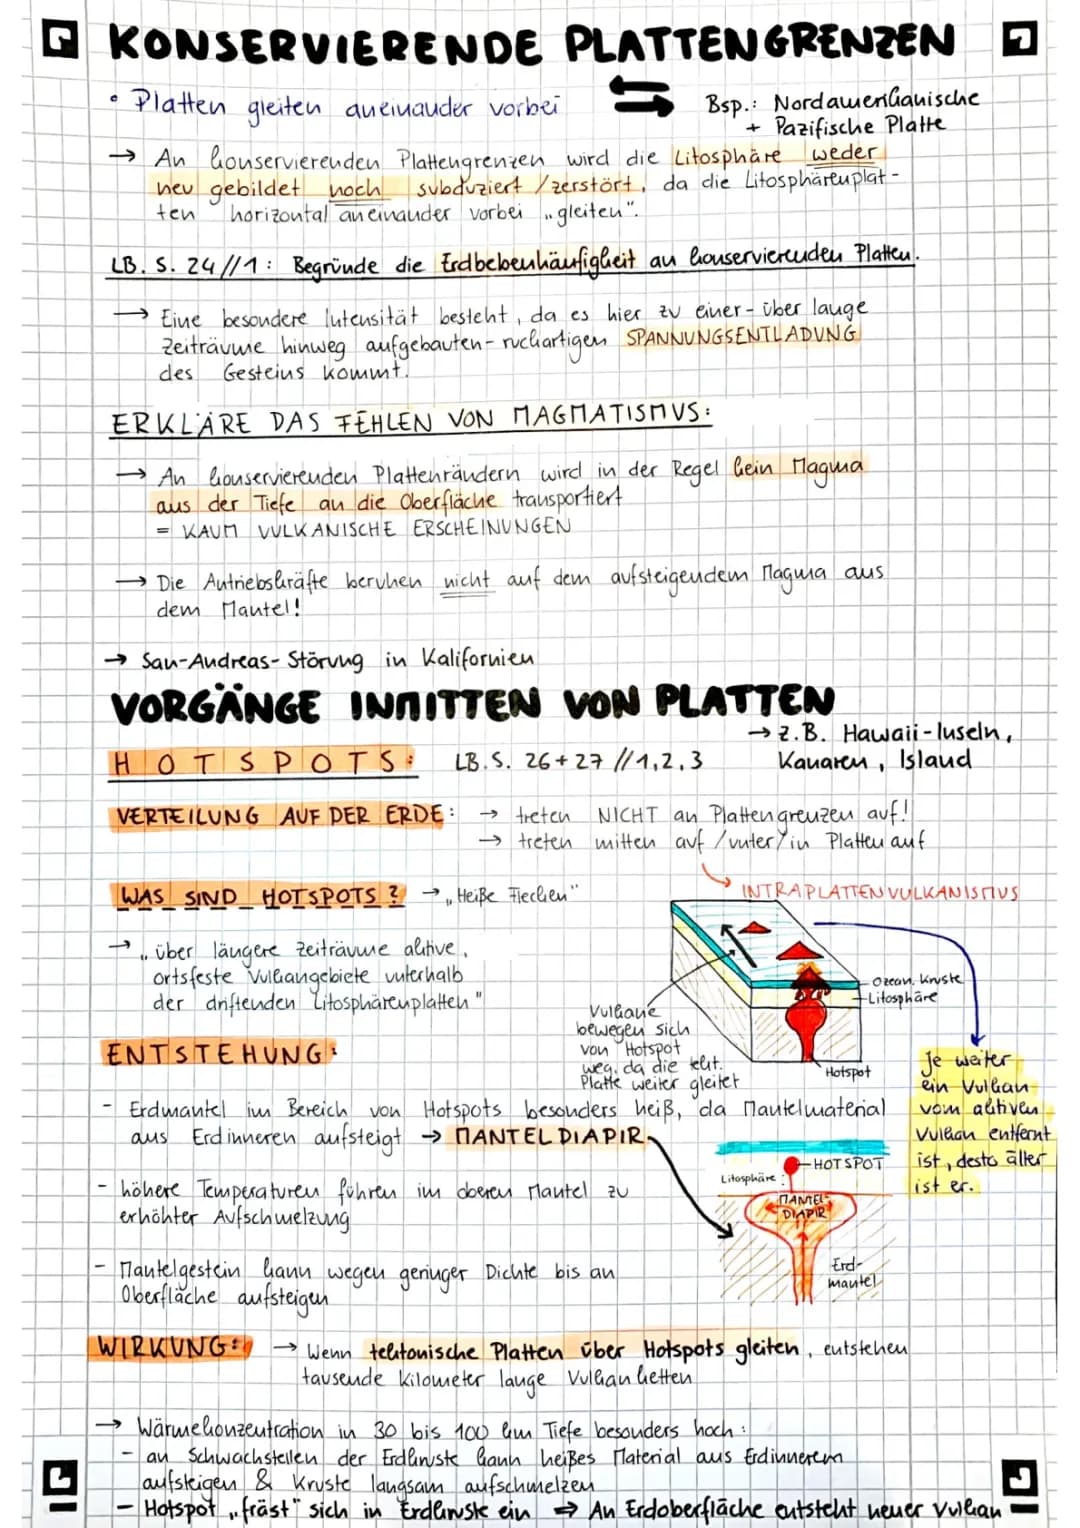 KONSERVIERENDE PLATTENGRENZEN
• Platten gleiten aneinander vorbei
Bsp.: Nordamerikanische
+ Pazifische Platte
→ An konservierenden Plattengrenzen wird die Litosphäre weder
neu gebildet noch subduziert / zerstört, da die Litosphärenplat-
ten horizontal aneinander vorbei „gleiten".
LB. S. 24 // 1: Begründe die Erdbebenhäufigkeit an konservierenden Platten.
→ Eine besondere Intensität besteht, da es hier zu einer - über lange
Zeiträume hinweg aufgebauten - ruckartigen SPANNUNGSENTLADUNG
des Gesteins kommt.
ERKLÄRE DAS FEHLEN VON MAGMATISMUS:
→ An konservierenden Plattenrändern wird in der Regel kein Magma
aus der Tiefe an die Oberfläche transportiert
= KAUM VULKANISCHE ERSCHEINUNGEN
→ Die Antriebskräfte beruhen nicht auf dem aufsteigendem Magma aus
dem Mantel!
→ San-Andreas-Störung in Kalifornien
VORGÄNGE INMITTEN VON PLATTEN
→ z.B. Hawaii-Inseln,
Kanaren, Island
HOTSPOTS: LB. S. 26+27 // 1,2,3
VERTEILUNG AUF DER ERDE: → treten NICHT an Plattengrenzen auf!
→ treten mitten auf / unter / in Platten auf
INTRAPLATTENVULKANISMUS
WAS SIND HOTSPOTS? → „Heiße Flecken"
→ „über längere Zeiträume aktive,
ortsfeste Vulkangebiete unterhalb
der driftenden Litosphärenplatten"
Ozean. Kruste
Litosphäre
Hotspot
Vulkane
bewegen sich
von Hotspot
weg, da die tekt.
Platte weiter gleitet
Je weiter
ein Vulkan
vom aktiven
Vulkan entfernt
ist, desto älter
ist er.
ENTSTEHUNG:
- Erdmantel im Bereich von Hotspots besonders heiß, da Mantelmaterial
aus Erdinneren aufsteigt → MANTELDIAPIR
- höhere Temperaturen führen im oberen Mantel zu
erhöhter Aufschmelzung
- Mantelgestein kann wegen geringer Dichte bis an
Oberfläche aufsteigen
HOTSPOT
Litosphäre
MANTEL-
DIAPIR
Erd-
mantel
WIRKUNG: → Wenn tektonische Platten über Hotspots gleiten, entstehen
tausende Kilometer lange Vulkanketten
→ Wärmekonzentration in 30 bis 100 km Tiefe besonders hoch:
- an Schwachstellen der Erdkruste kann heißes Material aus Erdinnerem
aufsteigen & Kruste langsam aufschmelzen
- Hotspot „fräst" sich in Erdkruste ein ⇒ An Erdoberfläche entsteht neuer Vulkan